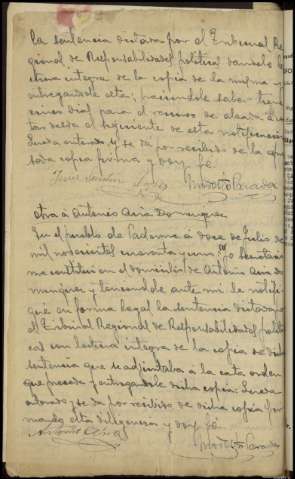 la sentencia dictada por el Tribunal Re
gional de Responsabilidades políticas dandole lec
tura integra de la copia de la misma y
entregandole esta; haciendole saber tiene
cinco dias para el recurso de alzada a con
tar desde el siguiente de esta notificacion
Queda enterado y se da por recibido de la cita
tada copia firma y doy fé.
otra a Antonio Domingues
En el pueblo de a doce de Julio de
mil novecientos cuarenta y uno yo Secretario
me constitui en el domicilio de Antonio Do
mingues y teniendole ante mi le notifi
qué en forma legal la sentencia dictada por
el Tribunal Regional de Responsabilidades politi
cas con lectura integra de la copia de dicha
sentencia que se adjuntaba a la carta orden
que precede y entregandole dicha copia. Queda
enterado y se da por recibido de dicha copia fir
mando esta diligencia y doy fé.
Antonio